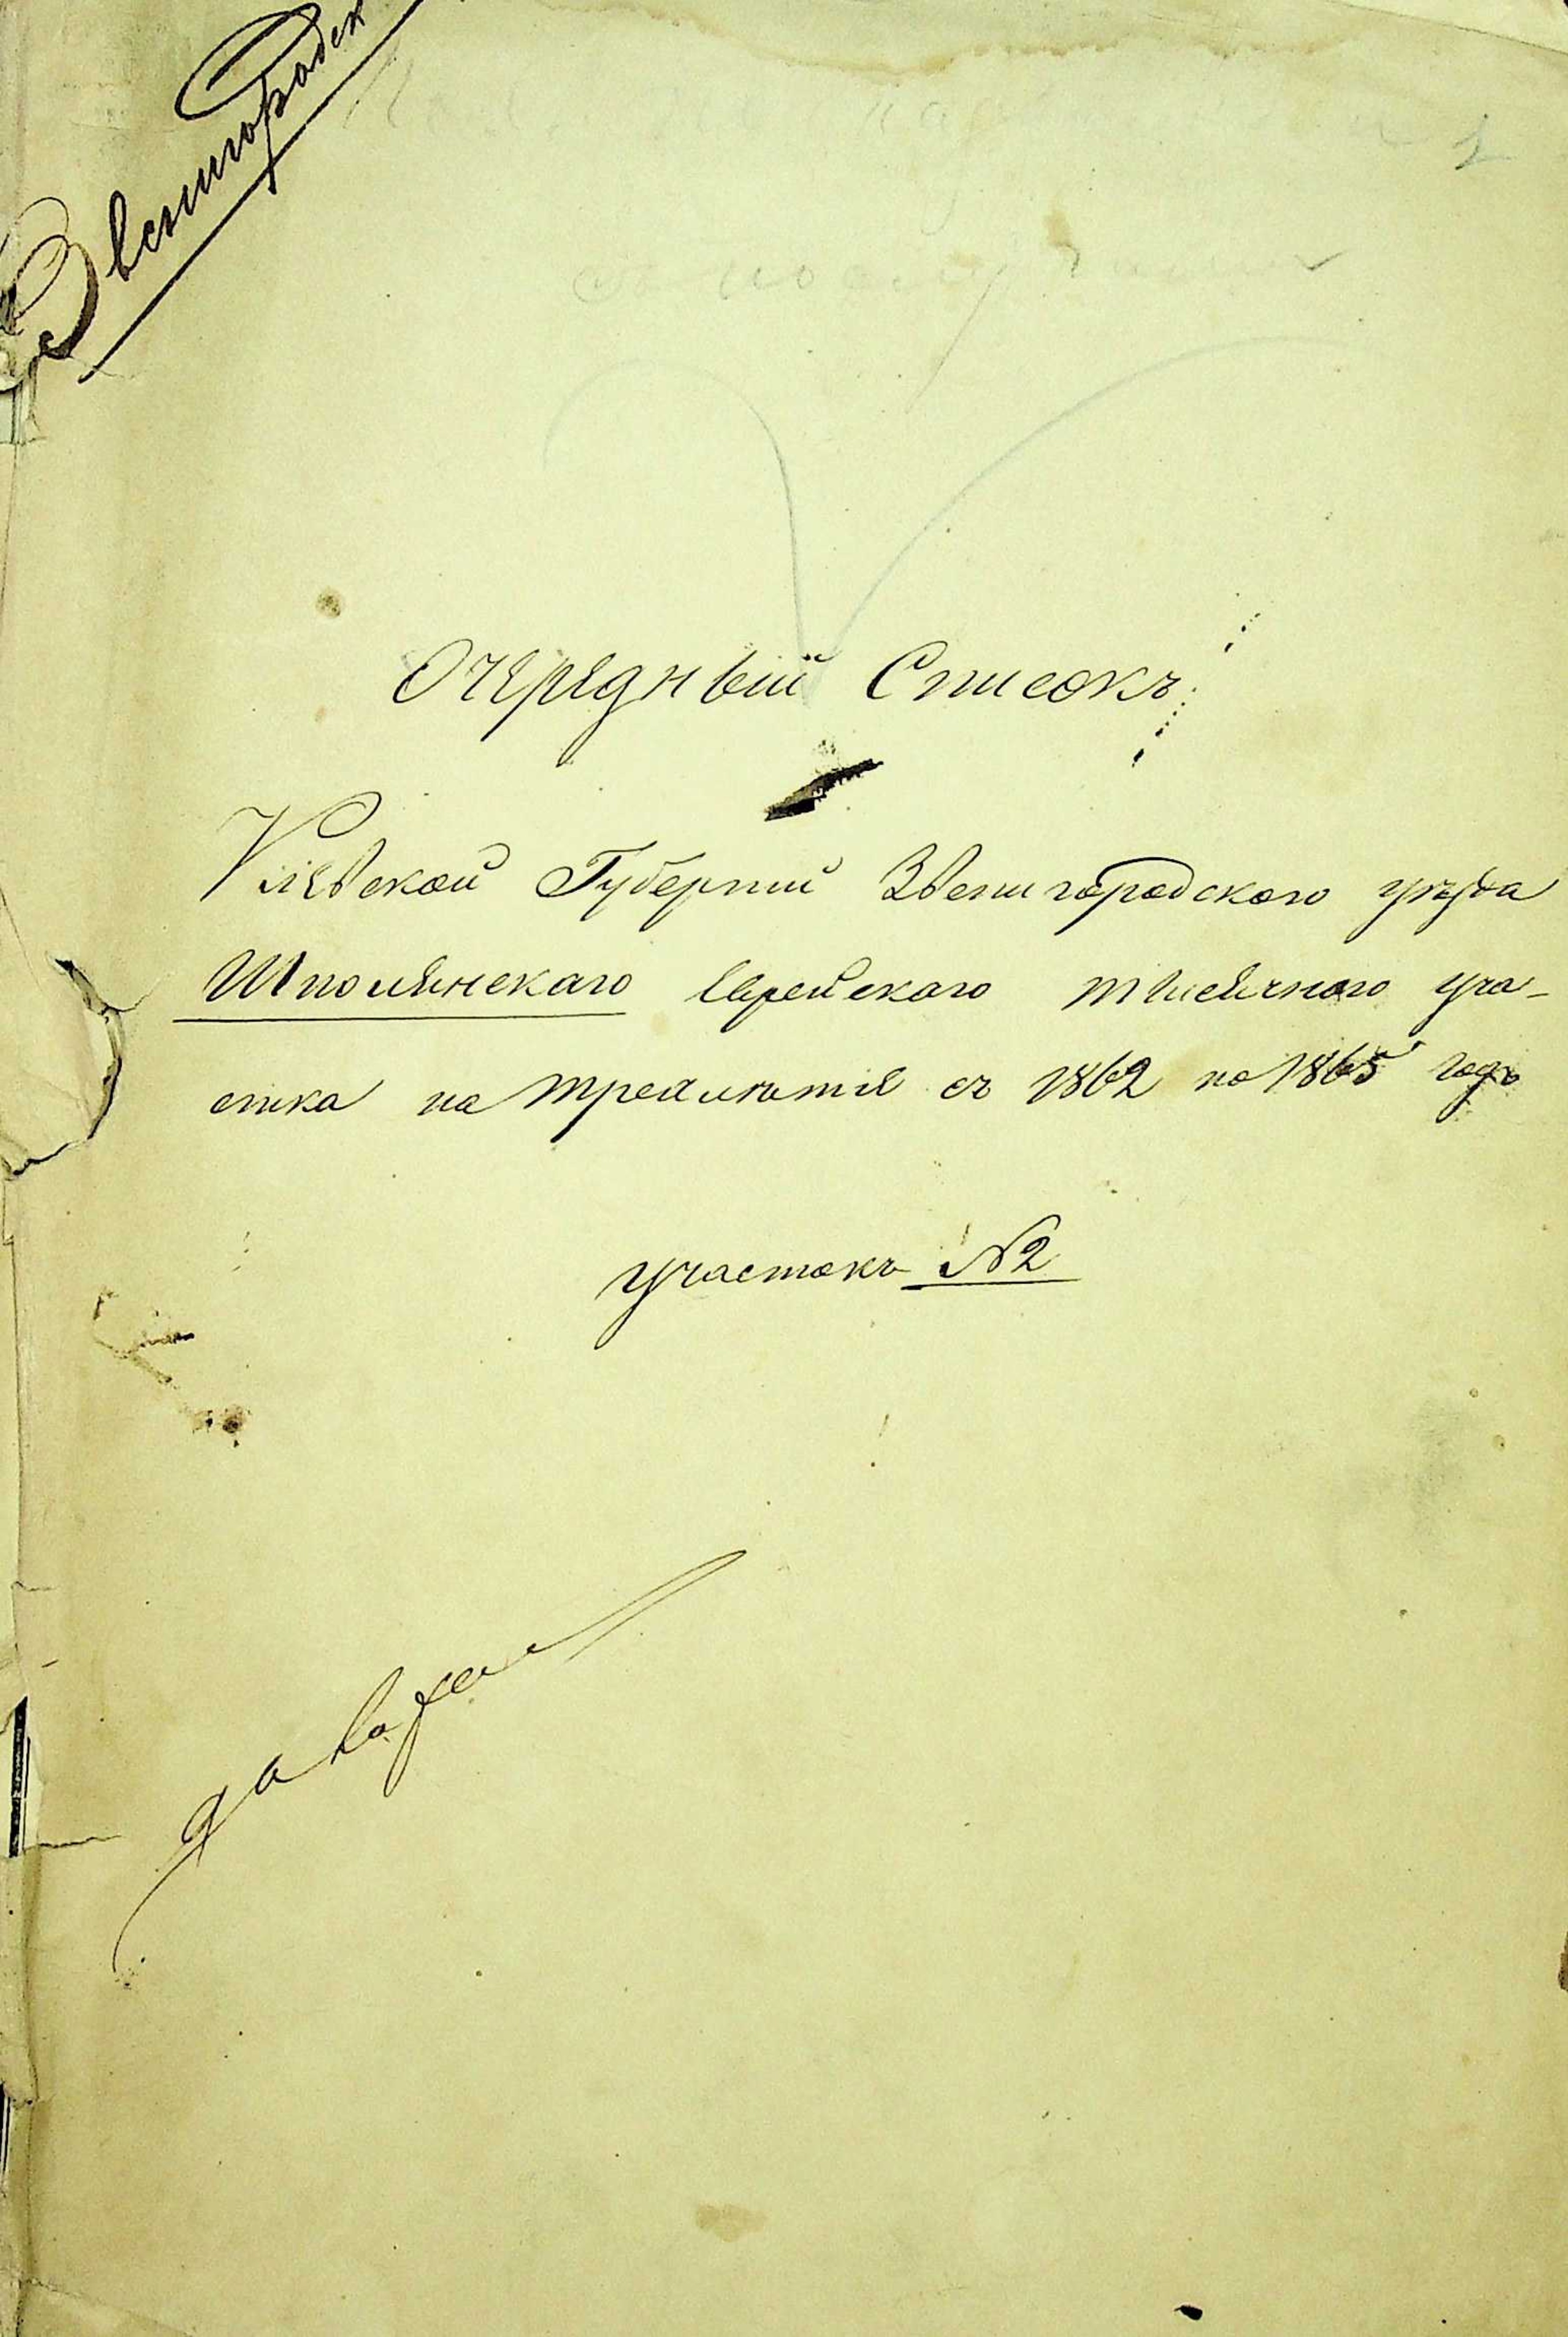 Звенигородск
1
Очередный Списокъ
Кіевской Губерніи Звенигородского уѣзда
Шполянскаго Еврейскаго тысячного уча-
стка на трехлѣтіе съ 1862 по 1865 годъ
участокъ №2